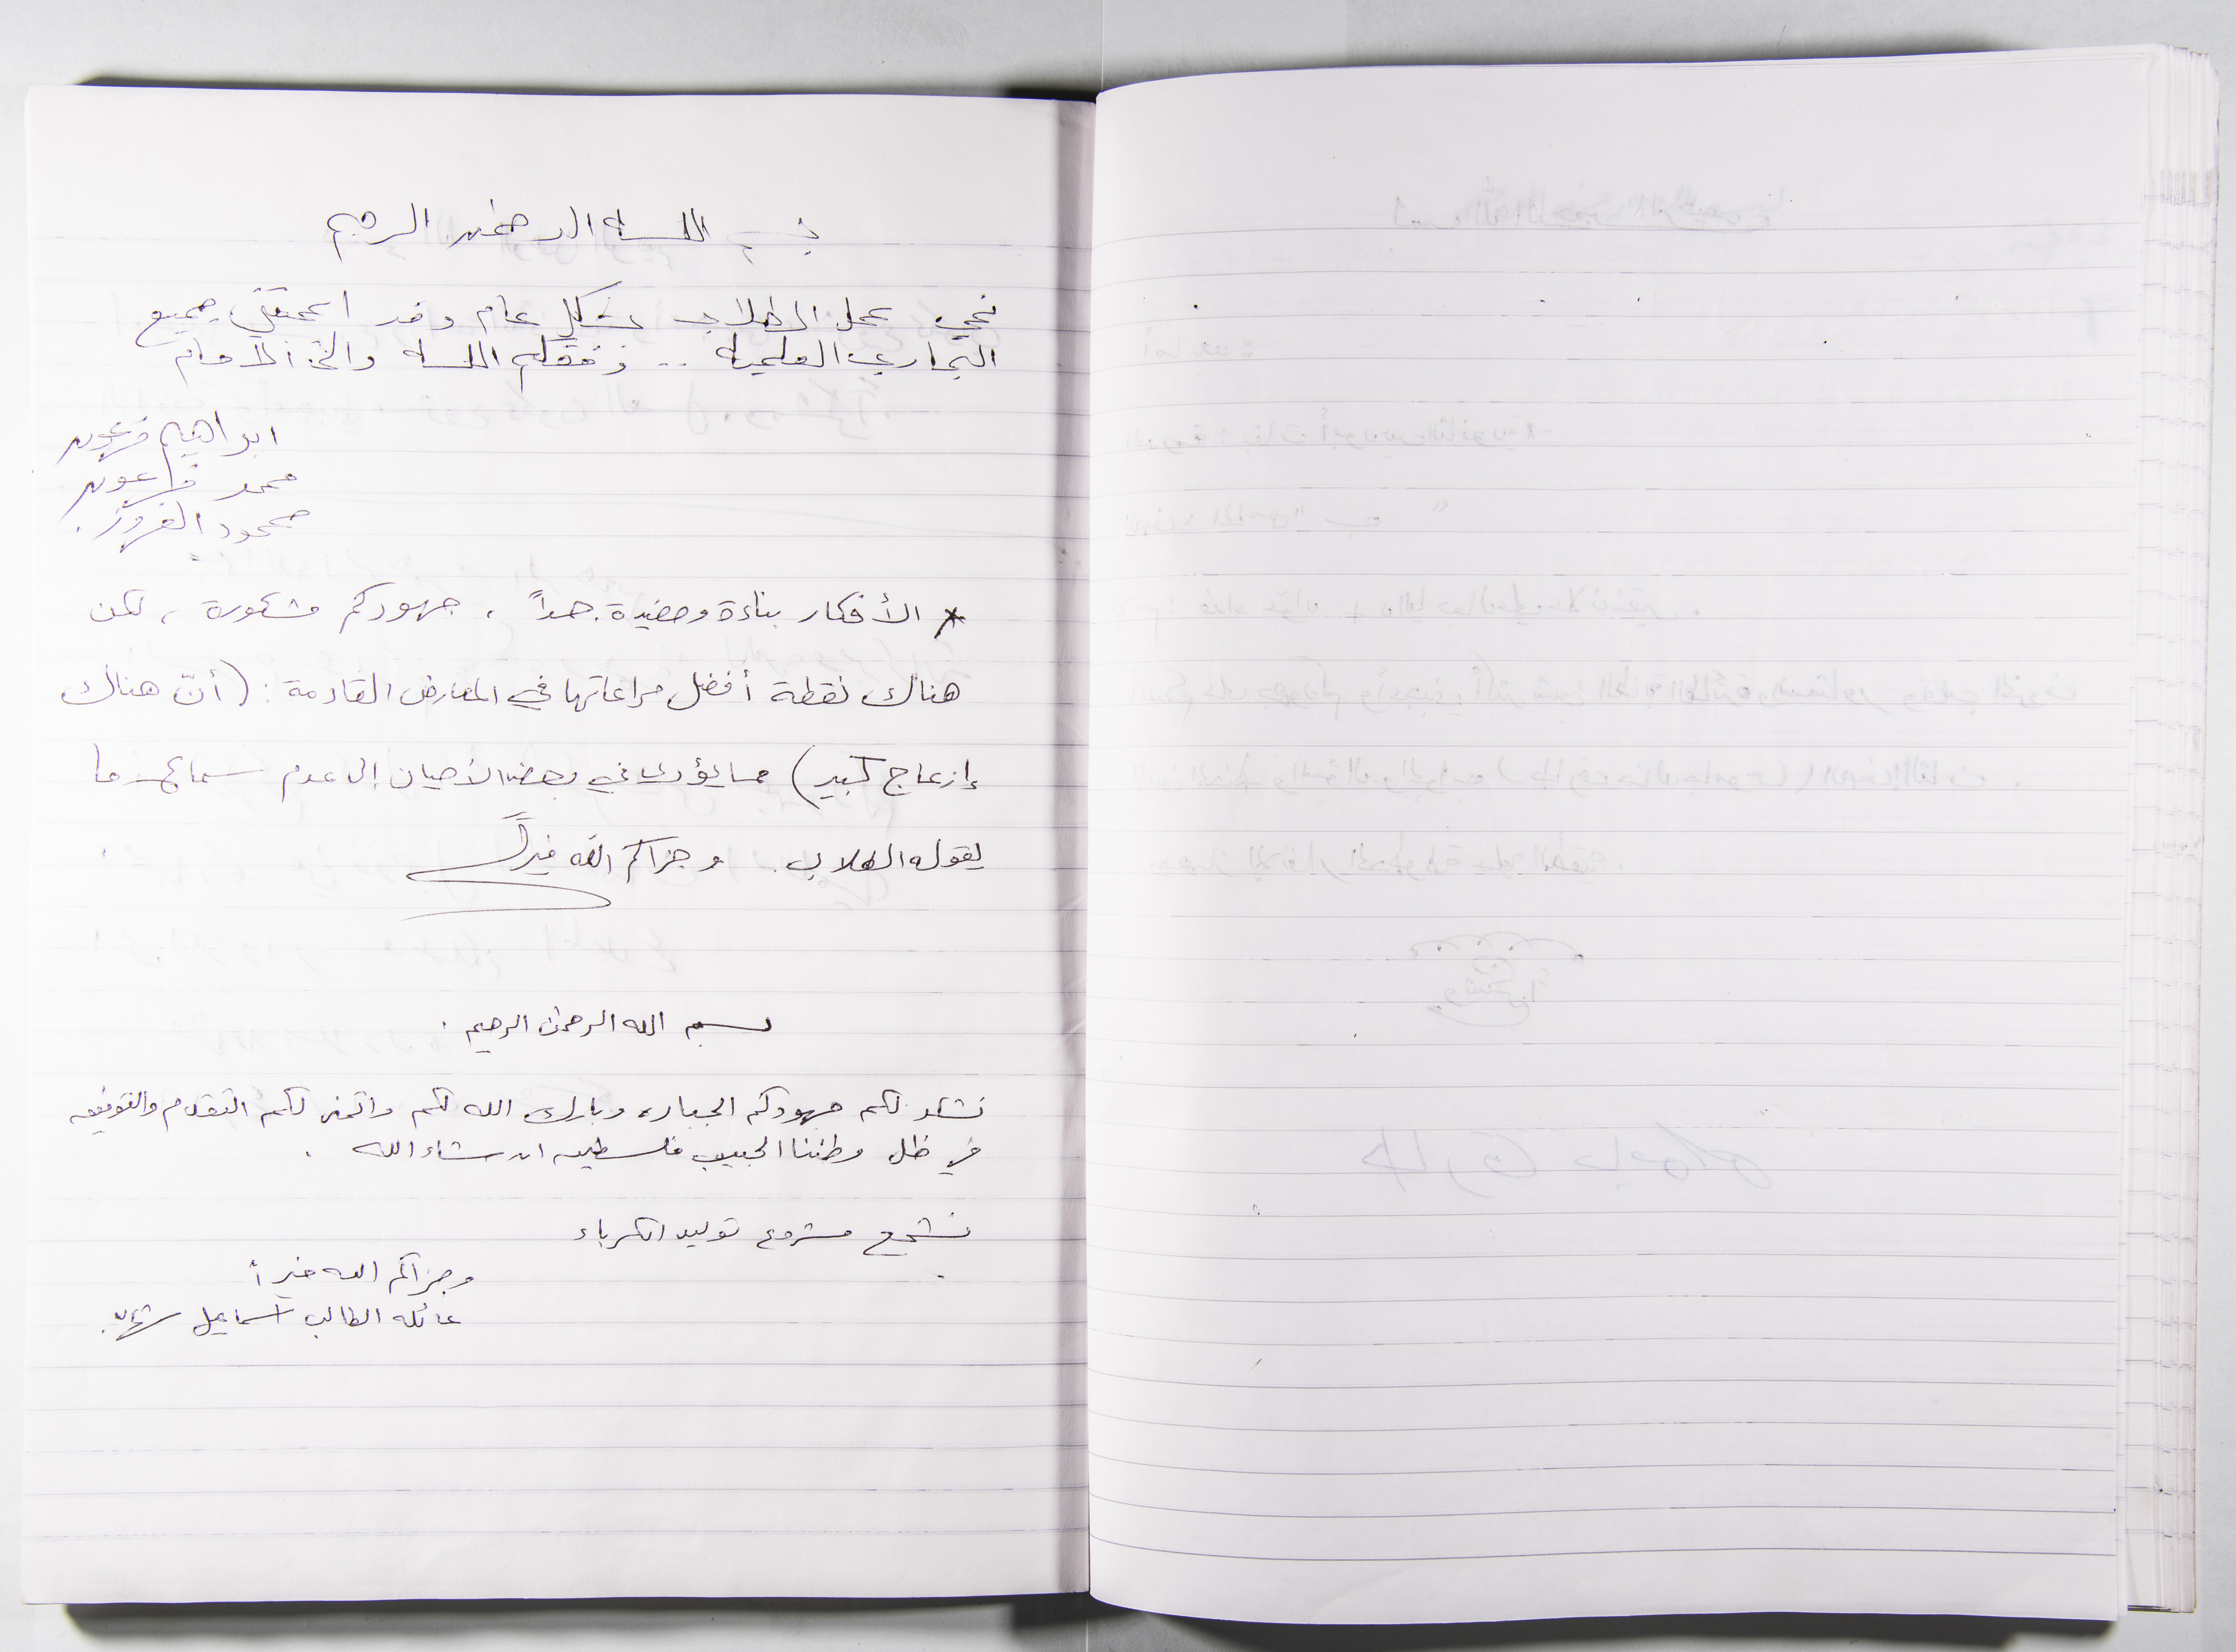 بسم الله الرحمن الرحيم
نحيي عمل الطلاب بشكل عام وقد اعجبتني جميع
التجارب العلمية .. وفقكم الله والى الامام
ابراهيم فرعون
محمد فرعون
محمود
* الأفكار بناءة ومفيدة جداً ، جهودكم مشكورة ، لكن
هناك نقطة أفضل مراعاتها في المعارض القادمة : (أنّ هناك
إزعاج كبير) مما يؤدي في بعض الأحيان إلى عدم سماع ما
يقوله الطلاب . وجزاكم الله خيراً
بسم الله الرحمن الرحيم .
نشكر لكم جهودكم الجباره وبارك الله لكم واتمنى لكم التقدم والتوفيق
في ظل وطننا الحبيب فلسطين ان شاء الله .
نشجع مشروع توليد الكهرباء
وجزاكم الله خيراً
عائلة الطالب اسماعيل